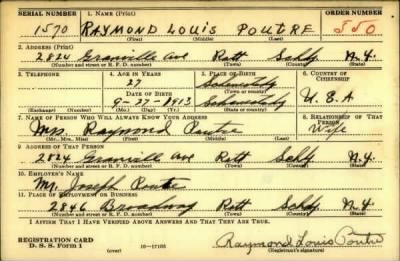 SERIAL NUMBER 1. NAME (Print) ORDER NUMBER
1570 RAYMOND LOUIS POUTRE 550
(First) (Middle) (Last)
2. ADDRESS (Print)
2824 Granville Ave Rott Schdy N.Y.
(Number and street or R. F. D. number) (Town) (County) (State)
3. TELEPHONE 4. AGE IN YEARS 5. PLACE OF BIRTH 6. COUNTRY OF CITIZENSHIP
27 Schenectady
DATE OF BIRTH (Town or county)
9-27-1913 Schenectady U.S.A
(Exchange) (No.) (Mo.) (Day) (Yr.) (State or country)
7. NAME OF PERSON WHO WILL ALWAYS KNOW YOUR ADDRESS 8. RELATIONSHIP OF THAT PERSON
Mrs. Raymond Poutre Wife
(Mr., Mrs., Miss) (First) (Middle) (Last)
9. ADDRESS OF THAT PERSON
2824 Granville Ave Rott Schdy N.Y.
(Number and street or R. F. D. number) (Town) (County) (State)
10. EMPLOYER'S NAME
Mr. Joseph Poutre
11. PLACE OF EMPLOYMENT OR BUSINESS
2846 Broadway Rott Schdy N.Y.
(Number and street or R. F. D. number) (Town) (County) (State)
I AFFIRM THAT I HAVE VERIFIED ABOVE ANSWERS AND THAT THEY ARE TRUE.
REGISTRATION CARD
D. S. S. Form 1 (over) 16—17105 Raymond Louis Poutre
(Registrant's signature)